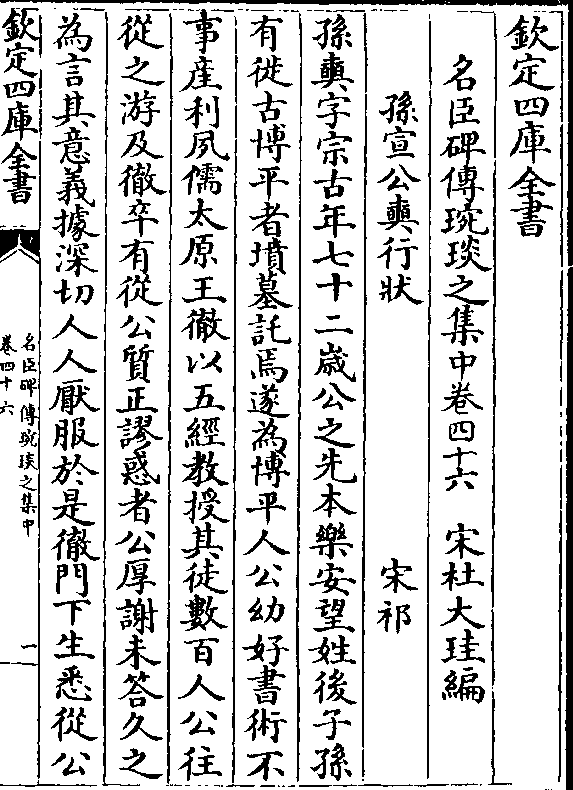 欽定四庫全書
名臣碑傳琬琰之集中卷四十六　宋杜大珪編
孫宣公奭行狀　宋祁
孫奭字宗古年七十二歲公之先本樂安望姓後子孫
有徙古博平者墳墓託焉遂為博平人公幼好書術不
事産利夙儒太原王徹以五經教授其徒數百人公往
從之游及徹卒有從公質正謬惑者公厚謝未答久之
為言其意義據深切人人厭服於是徹門下生悉從公
欽定四庫全書
名臣碑傳琬琰之集中
卷四十六
一